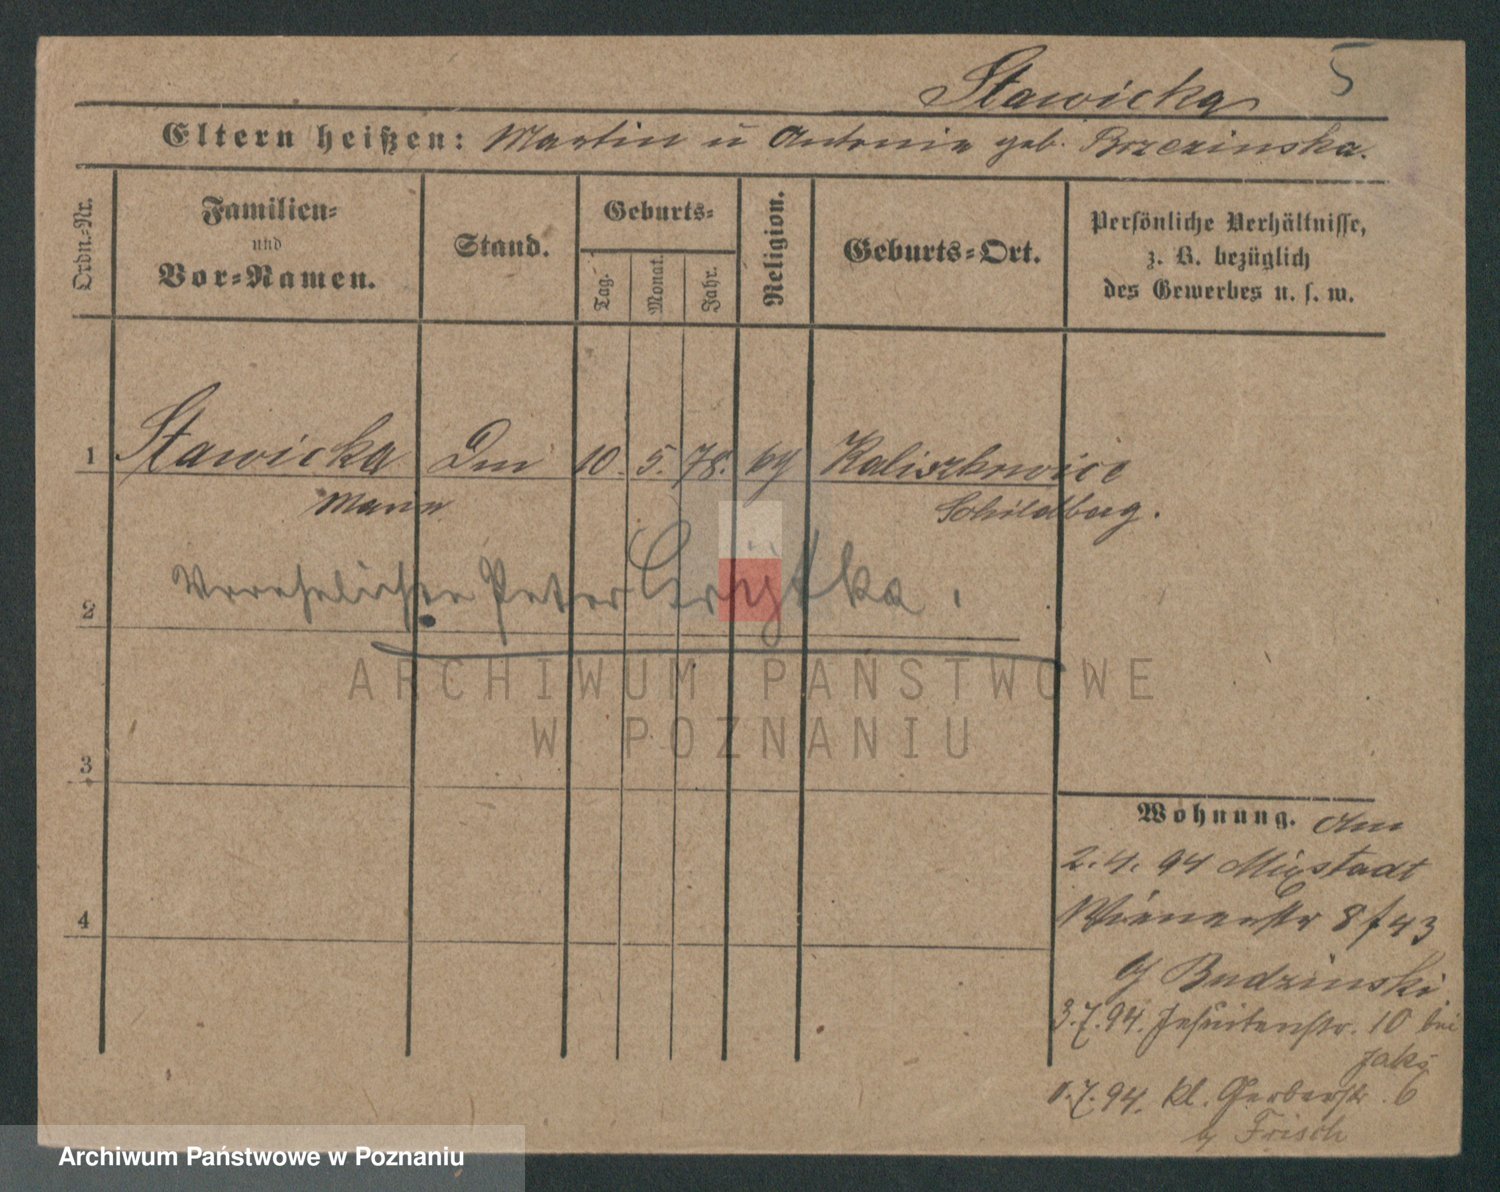 Stawicka 5
Eltern heißen: Martin u Antonie geb. Brzezinska.
Ordn.-Nr.
Familien-
und
Vor-Namen.
Stand.
Geburts-
Tag.
Monat.
Jahr.
Religion.
Geburts-Ort.
Persönliche Verhältnisse,
z. B. bezüglich
des Gewerbes u. s. w.
1 Stawicka 10. 5. 78. Kaliszkowice
Marie Schildberg.
2 Verehelichte Peter
3
4
ARCHIWUM PAŃSTWOWE
W POZNANIU
Wohnung. Am
2.4.94 Mixstadt
Wienerstr 8 f 43
Budzinski
3.7.94. Jesuitenstr. 10 bei
7.94. kl. Gerberstr. 6
b Frisch
Archiwum Państwowe w Poznaniu